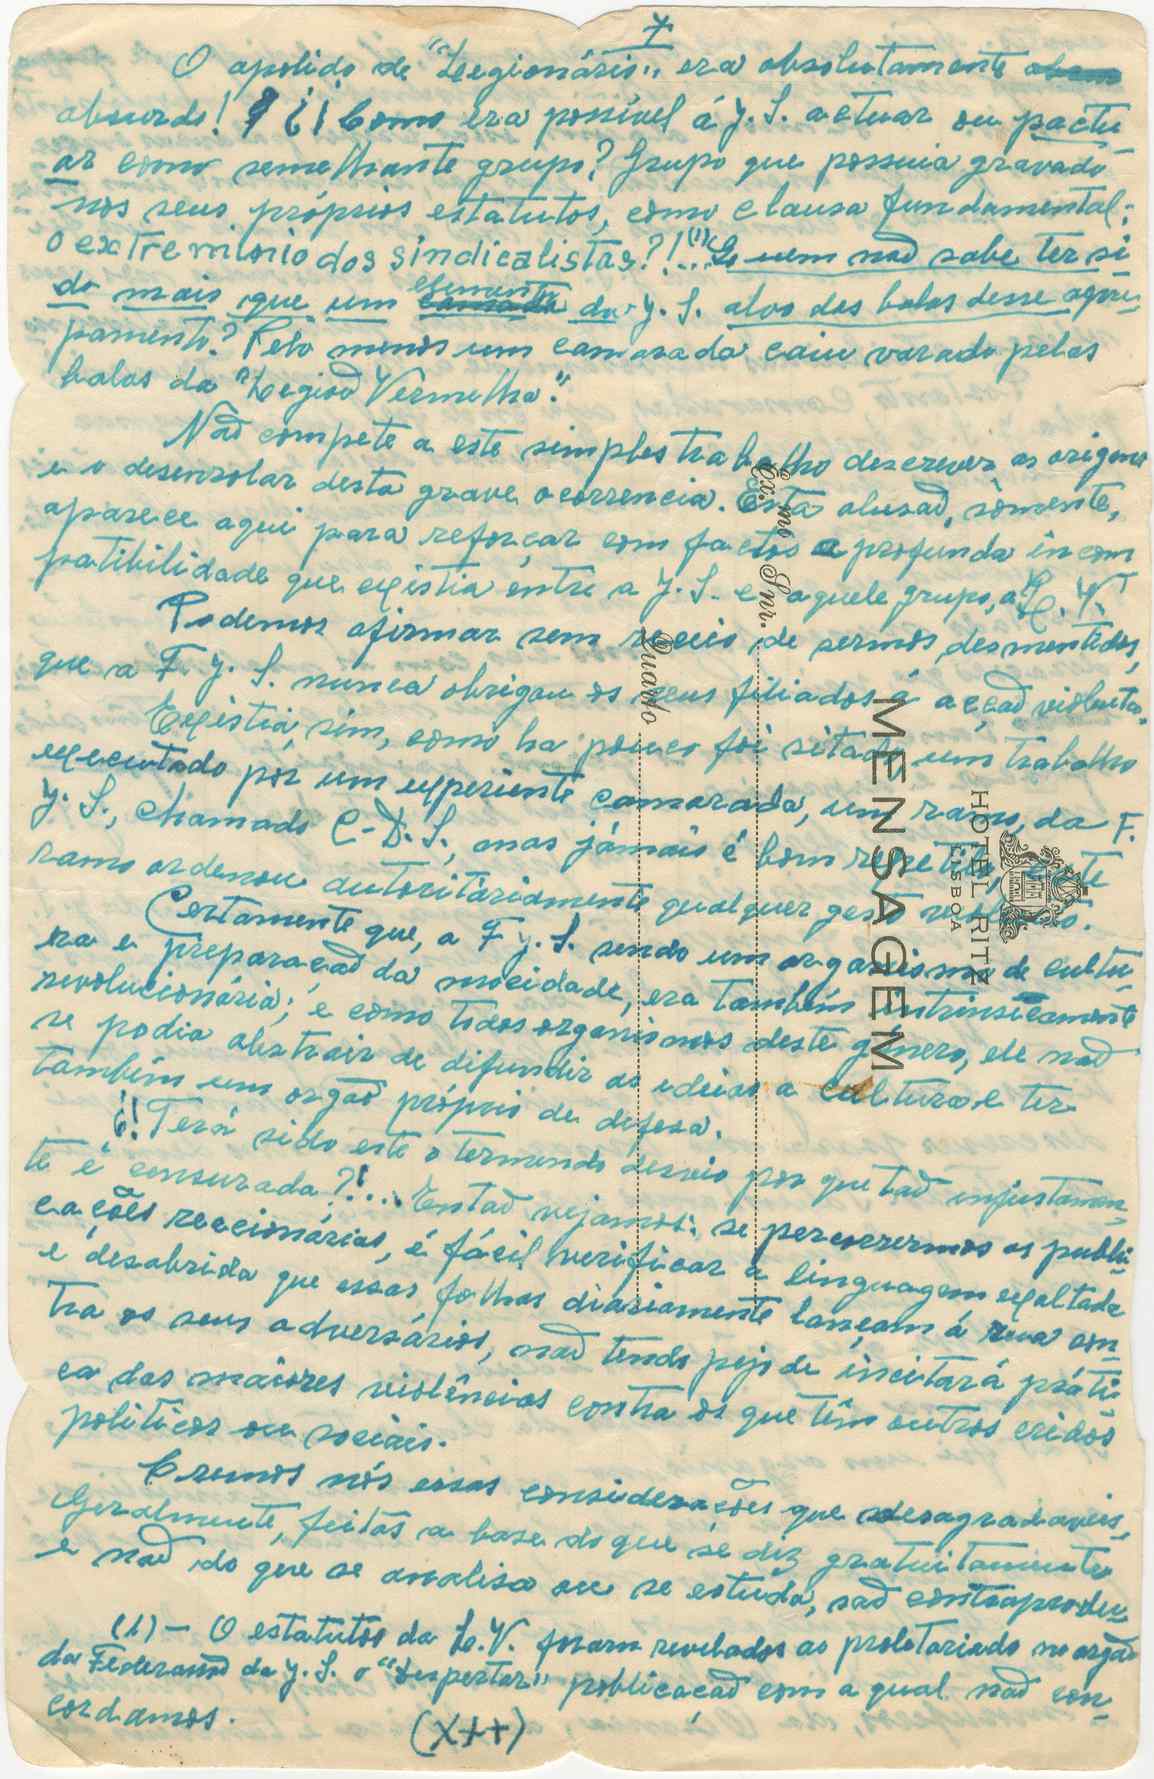 7
O apelido de "Legionário" era absolutamente
absurdo! ¿¡ Como era possível á J. S. actuar ou pactu-
ar como semelhante grupo? Grupo que possuia gravado
nos seus próprios estatutos, como clausa fundamental:
o extreminio dos sindicalistas?!...(1) Se nem não sabe ter si-
do mais que um elemento da J. S. alvo das balas desse agru-
pamento? Pelo menos um camarada caiu varado pelas
balas da "Legião Vermelha".
Não compete a este simples trabalho descrever as origens
e o desenrolar desta grave ocorrencia. Esta alusão, sòmente,
aparece aqui para reforçar com factos a profunda incom
patibilidade que existia éntre a J. S. e aquele grupo, a L. V.
Podemos afirmar sem receio de sermos desmentidos,
que a F. J. S. nunca obrigou os seus filiados á acção violenta.
Existia, sim, como ha pouco foi sitado um trabalho
executado por um experiente camarada, um ramo, da F.
J. S., chamado C-D. S., mas jámais é bom repetir este
ramo ordenou autoritáriamente qualquer gesto
Certamente que, a F. J. S. sendo um organismo de cultu-
ra e preparação da mocidade, era também intrinsicamente
revolucionária; e como todos organismos deste género, ele não
se podia abstrair de difundir as ideias a cultura e ter
também um orgão próprio de defesa.
¿! Terá sido este o tremendo desvio por que tão injustamen-
te é censurada?!... Então vejamos: se percorrermos as publi-
cações reacionárias, é fácil verificar a linguagem exaltada
e desabrida que essas folhas diáriamente lançam á rua con-
tra os seus adversários, não tendo pejo de incitar á práti-
ca das maiores violências contra os que têm outros cridos
politicos ou sociais.
Cremos nós essas considerações que desagradaveis,
Geralmente, feitas a base do que se diz gratuitamente
e não do que se analisa ou se estuda, são contraprodu-
(1) — O estatutos da L. V. foram revelados ao proletariado no orgão
da Federação da J. S. o "Despertar" publicação com a qual não con-
cordamos.
(X++)
Ex.mo Snr.
Quarto
MENSAGEM
HOTEL RITZ
LISBOA